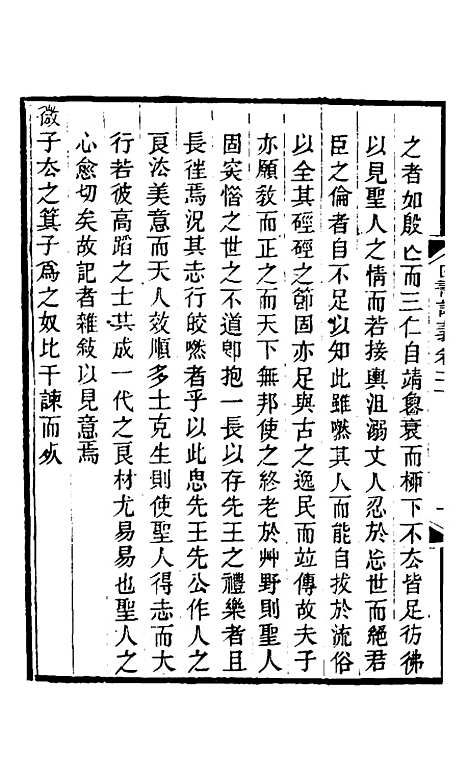 之者如殷亾而三仁自靖魯衰而柳下不厺皆足彷彿
以見聖人之情而若接輿沮溺丈人忍於忘世而絕君
臣之倫者自不足以知此雖嘫其人而能自拔於流俗
以全其硜硜之節固亦足與古之逸民而竝傳故夫子
亦願敎而正之而天下無邦使之終老於艸野則聖人
固突惛之世之不道郎抱一長以存先王之禮樂者且
長徃焉況其志行皎嘫者乎以此思先王先公作人之
良法美意而天人效順多士克生則使聖人得志而大
行若彼高蹈之士其成一代之良材尤易易也聖人之
心愈切矣故記者雜敍以見意焉
微子厺之箕子爲之奴比干諫而𣦸
四書訓義卷二
一